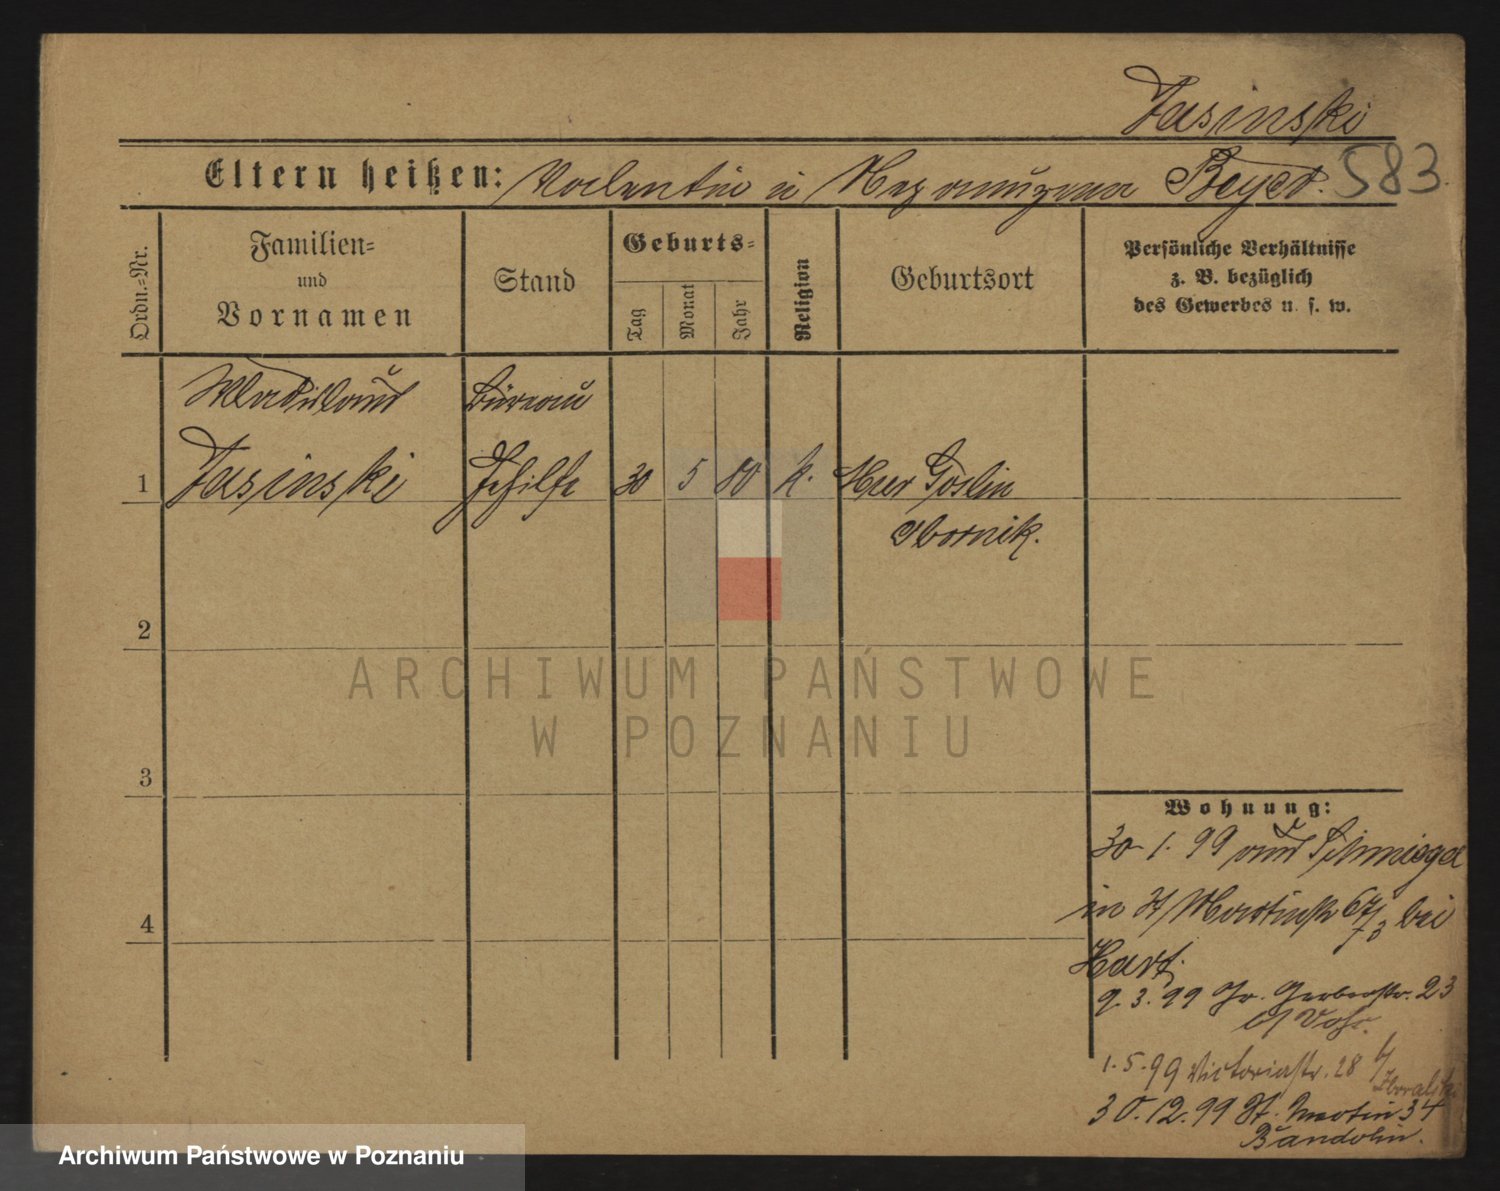 Jasinski
Eltern heißen: Valentin u Nepomuzena Beyer. 583.
Ordn.-Nr.
Familien-
und
Vornamen
Stand
Geburts-
Tag
Monat
Jahr
Religion
Geburtsort
Persönliche Verhältnisse
z. B. bezüglich
des Gewerbes u. s. w.
Wladislaus Büreau
1 Jasinski Gehilfe 30 5 80 k. Mur Goslin
Obornik.
2
3
4
Wohnung:
30 1. 99 aus Schmiegel
in St Martinstr 67/ bei
Hart.
9. 3. 99 Gr. Gerberstr. 23
1. 5. 99 Victoriastr. 28 b/
30. 12. 99 St. Martin 34
Bandolin.
ARCHIWUM PAŃSTWOWE
W POZNANIU
Archiwum Państwowe w Poznaniu